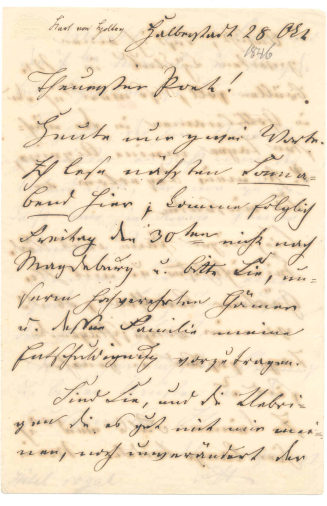 Karl von Holtei
Halberstadt 28 Okt
1846
Theuerster Poet!
Heute nur zwei Worte.
Ich lese nächsten Sonna-
bend hier; komme folglich
Freitag den 30ten nicht nach
Magdeburg u. bitte Sie, un-
serm hochverehrten
u. dessen Familie meine
Entschuldigung vorzutragen.
Sind Sie, und die Uebri-
gen die es gut mit mir mei-
nen, noch unverändert der